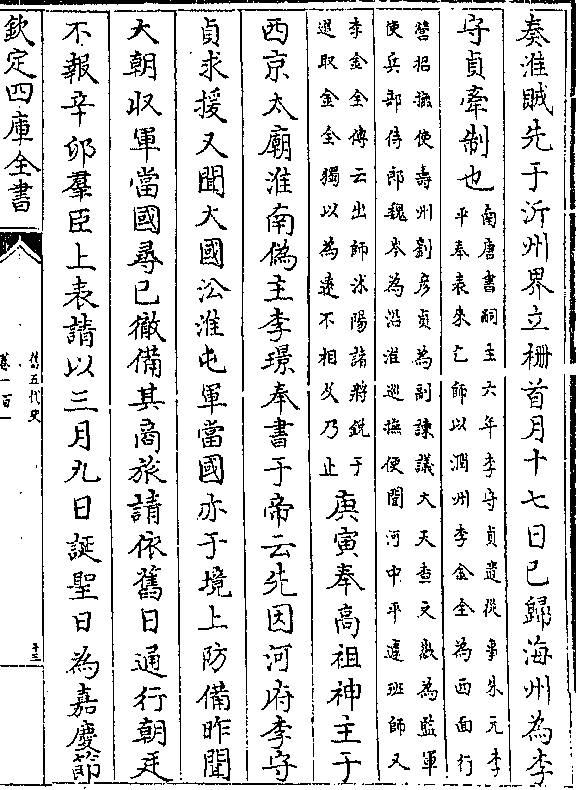 奏淮賊先于沂州界立柵首月十七日已歸海州為李
守貞牽制也南唐書嗣主六年李守貞遣從事朱元李
平奉表來乞師以潤州李金全為西面行
營招撫使壽州劉彥貞為副諫議大夫查文徽為監軍
使兵部侍郎魏岑為沿淮巡撫使聞河中平遽班師又
李金全傳云出師沭陽諸將銳于
進取金全獨以為遠不相及乃止庚寅奉高祖神主于
西京太廟淮南偽主李璟奉書于帝云先因河府李守
貞求援又聞大國沿淮屯軍當國亦于境上防備昨聞
大朝收軍當國尋已徹備其商旅請依舊日通行朝廷
不報辛卯羣臣上表請以三月九日誕聖日為嘉慶節
欽定四庫全書
舊五代史
卷一百一
十三